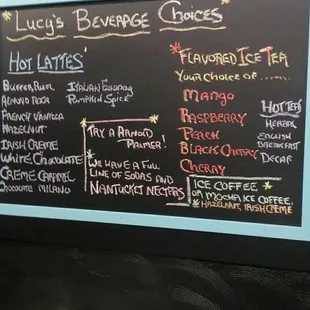 "Lucy's Beverage Choices"
Hot Lattes'
Butter Rum
Almond Roca
French Vanilla
Hazelnut
Irish Creme
White Chocolate
Creme Caramel
Chocolate Milano
Italian Eggnog
Pumpkin Spice
Try a Arnold
Palmer!
We have a full
line of sodas and
Nantucket Necters
Flavored Ice Tea
Your choice of ......
Mango
Raspberry
Peach
Black Cherry
Cherry
Hot Teas
Herbal
English
Breakfast
Decaf
Ice Coffee
or Mocha Ice Coffee
Hazelnut, Irish Creme